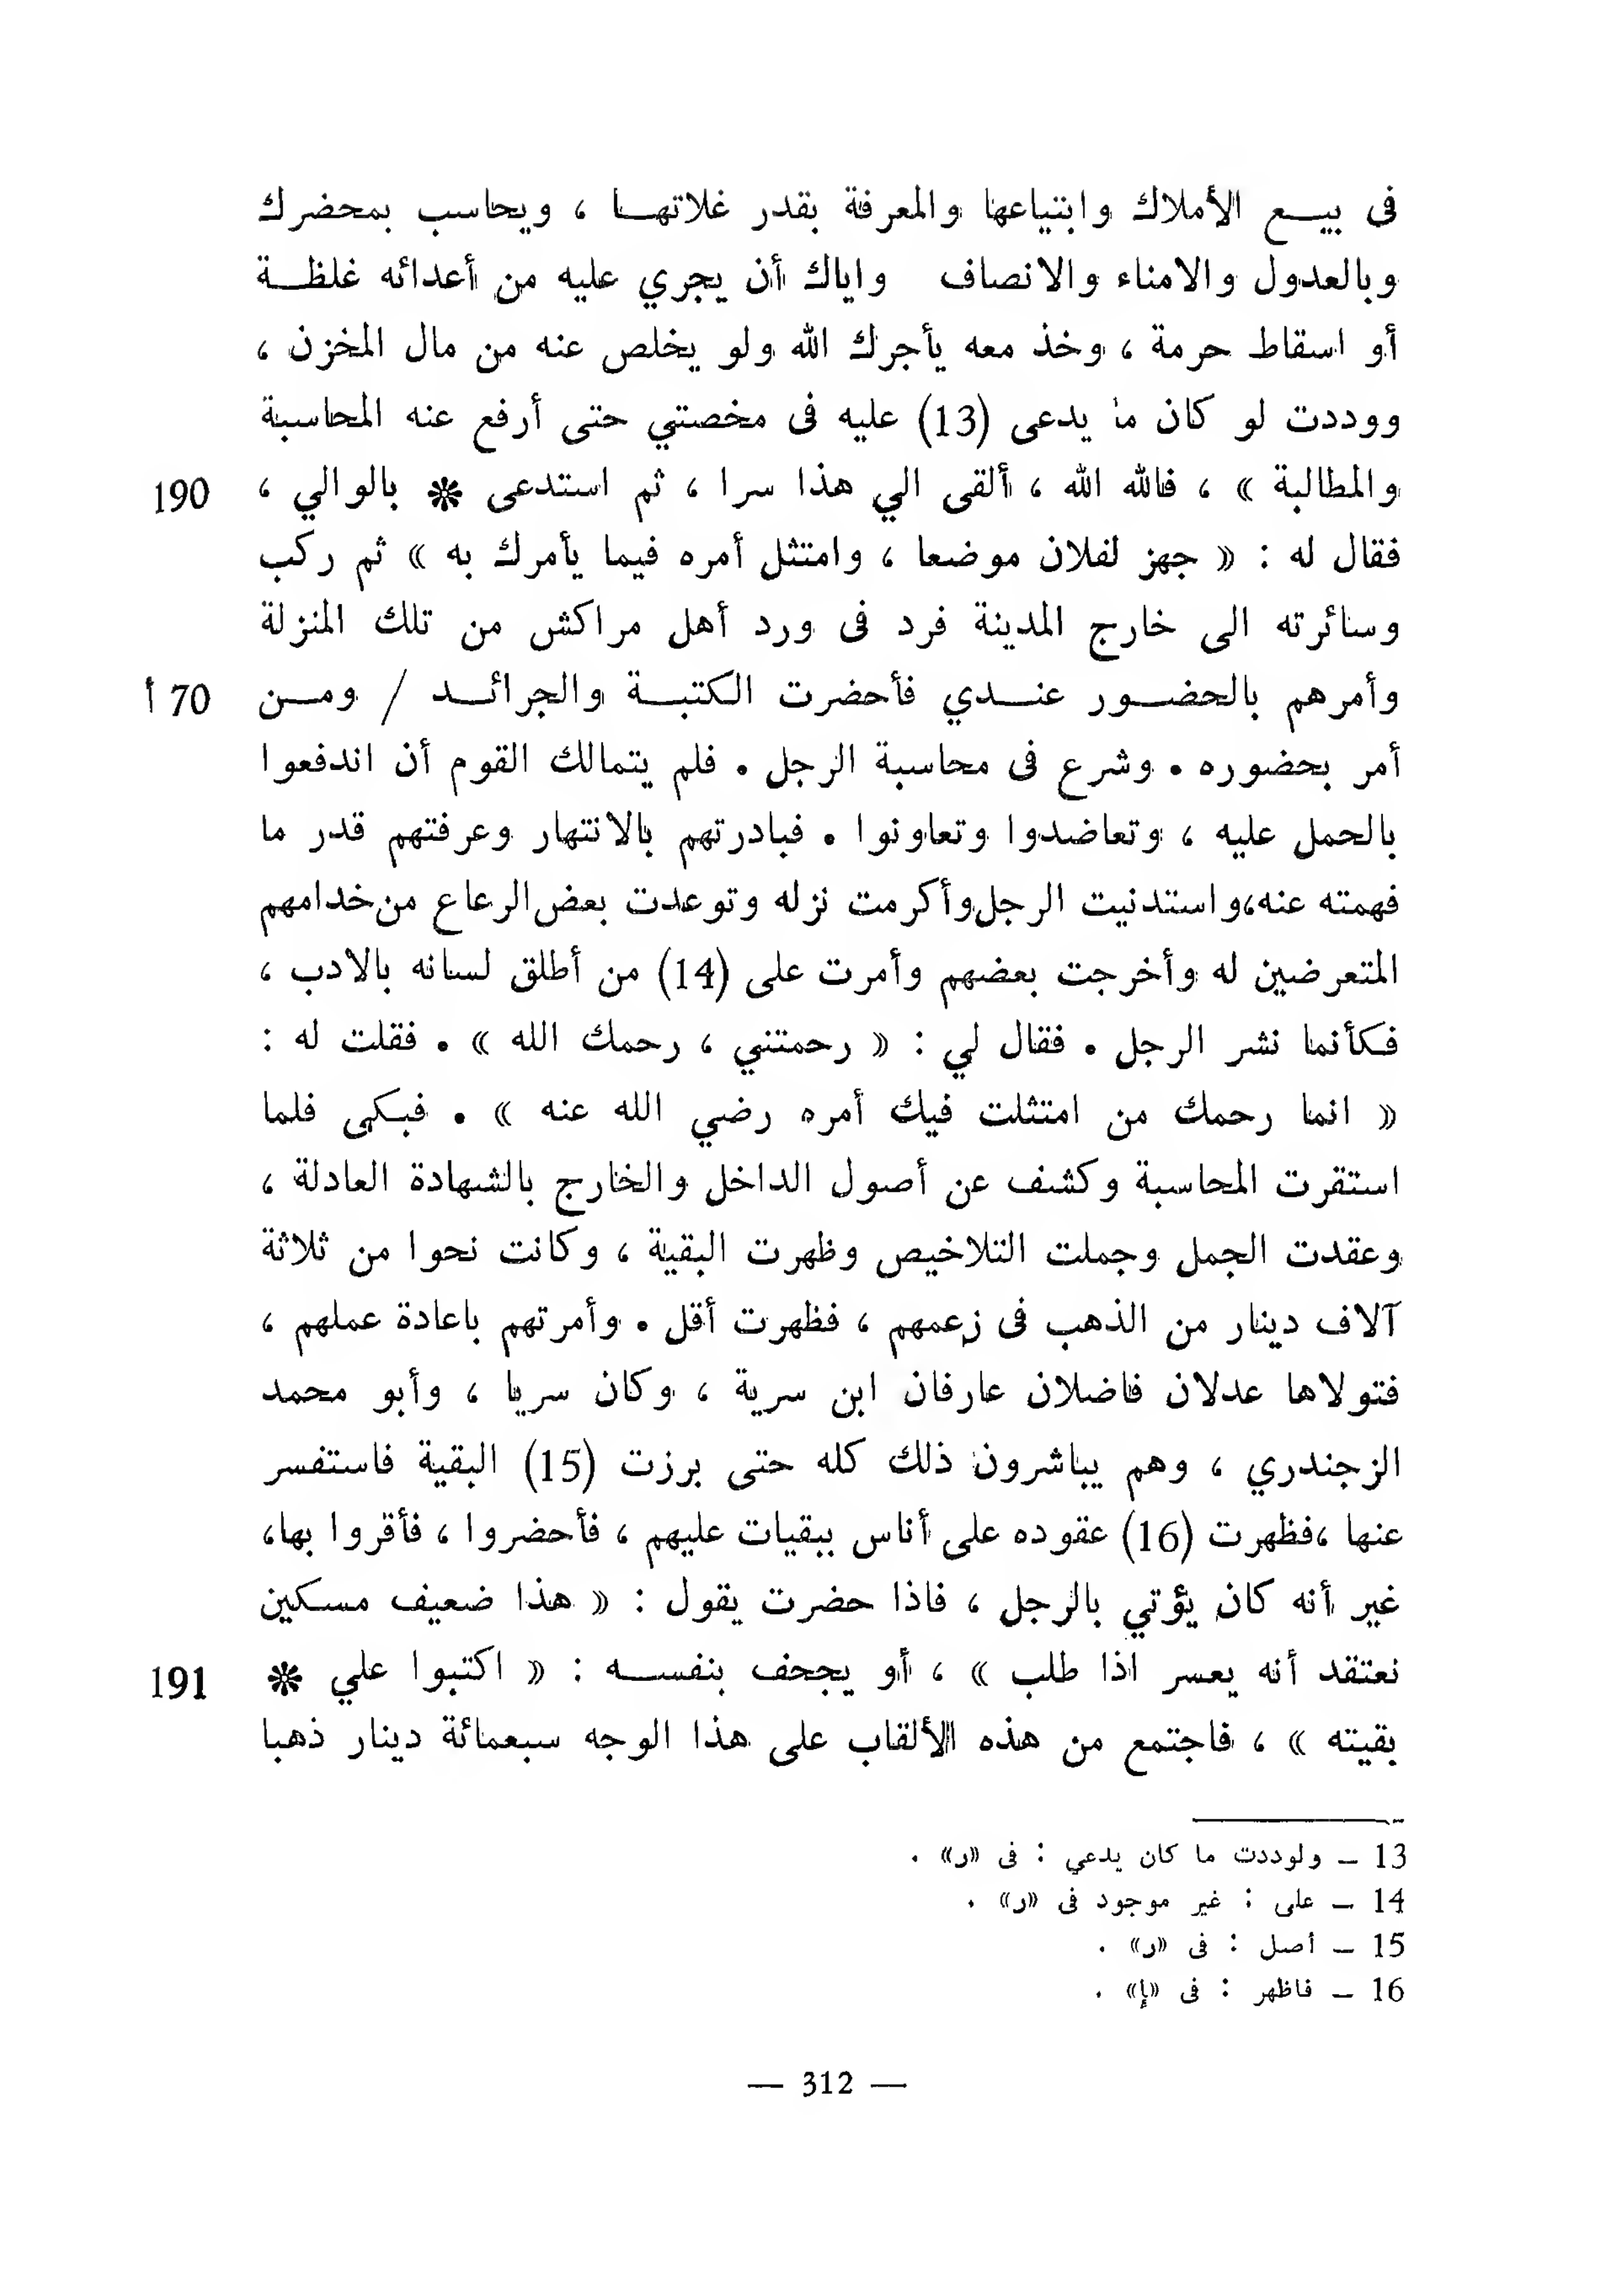 فى بيع الأملاك وابتياعها والمعرفة بقدر غلاتها ، ويحاسب بمحضرك
وبالعدول والامناء والانصاف واياك أن يجري عليه من أعدائه غلظة
أو اسقاط حرمة ، وخذ معه يأجرك الله ولو يخلص عنه من مال المخزن ،
ووددت لو كان ما يدعى (13) عليه فى مخصتي حتى أرفع عنه المحاسبة
والمطالبة » ، فالله الله ، ألقى الي هذا سرا ، ثم استدعى * بالوالي ، 190
فقال له : « جهز لفلان موضعا ، وامتثل أمره فيما يأمرك به » ثم ركب
وسائرته الى خارج المدينة فرد فى ورد أهل مراكش من تلك المنزلة
وأمرهم بالحضور عندي فأحضرت الكتبة والجرائد / ومن 70 أ
أمر بحضوره . وشرع فى محاسبة الرجل . فلم يتمالك القوم أن اندفعوا
بالحمل عليه ، وتعاضدوا وتعاونوا . فبادرتهم بالانتهار وعرفتهم قدر ما
فهمته عنه،واستدنيت الرجل وأكرمت نزله وتوعدت بعض الرعاع من خدامهم
المتعرضين له وأخرجت بعضهم وأمرت على (14) من أطلق لسانه بالادب ،
فكأنما نشر الرجل . فقال لي : « رحمتني ، رحمك الله » . فقلت له :
« انما رحمك من امتثلت فيك أمره رضي الله عنه » . فبكى فلما
استقرت المحاسبة وكشف عن أصول الداخل والخارج بالشهادة العادلة ،
وعقدت الجمل وجملت التلاخيص وظهرت البقية ، وكانت نحوا من ثلاثة
آلاف دينار من الذهب فى زعمهم ، فظهرت أقل . وأمرتهم باعادة عملهم ،
فتولاها عدلان فاضلان عارفان ابن سرية ، وكان سريا ، وأبو محمد
الزجندري ، وهم يباشرون ذلك كله حتى برزت (15) البقية فاستفسر
عنها ،فظهرت (16) عقوده على أناس ببقيات عليهم ، فأحضروا ، فأقروا بها،
غير أنه كان يؤتي بالرجل ، فاذا حضرت يقول : « هذا ضعيف مسكين
نعتقد أنه يعسر اذا طلب » ، أو يجحف بنفسه : « اكتبوا علي * 191
بقيته » ، فاجتمع من هذه الألقاب على هذا الوجه سبعمائة دينار ذهبا
13 — ولوددت ما كان يدعي : فى «ر» .
14 — على : غير موجود فى «ر» .
15 — أصل : فى «ر» .
16 — فاظهر : فى «إ» .
— 312 —